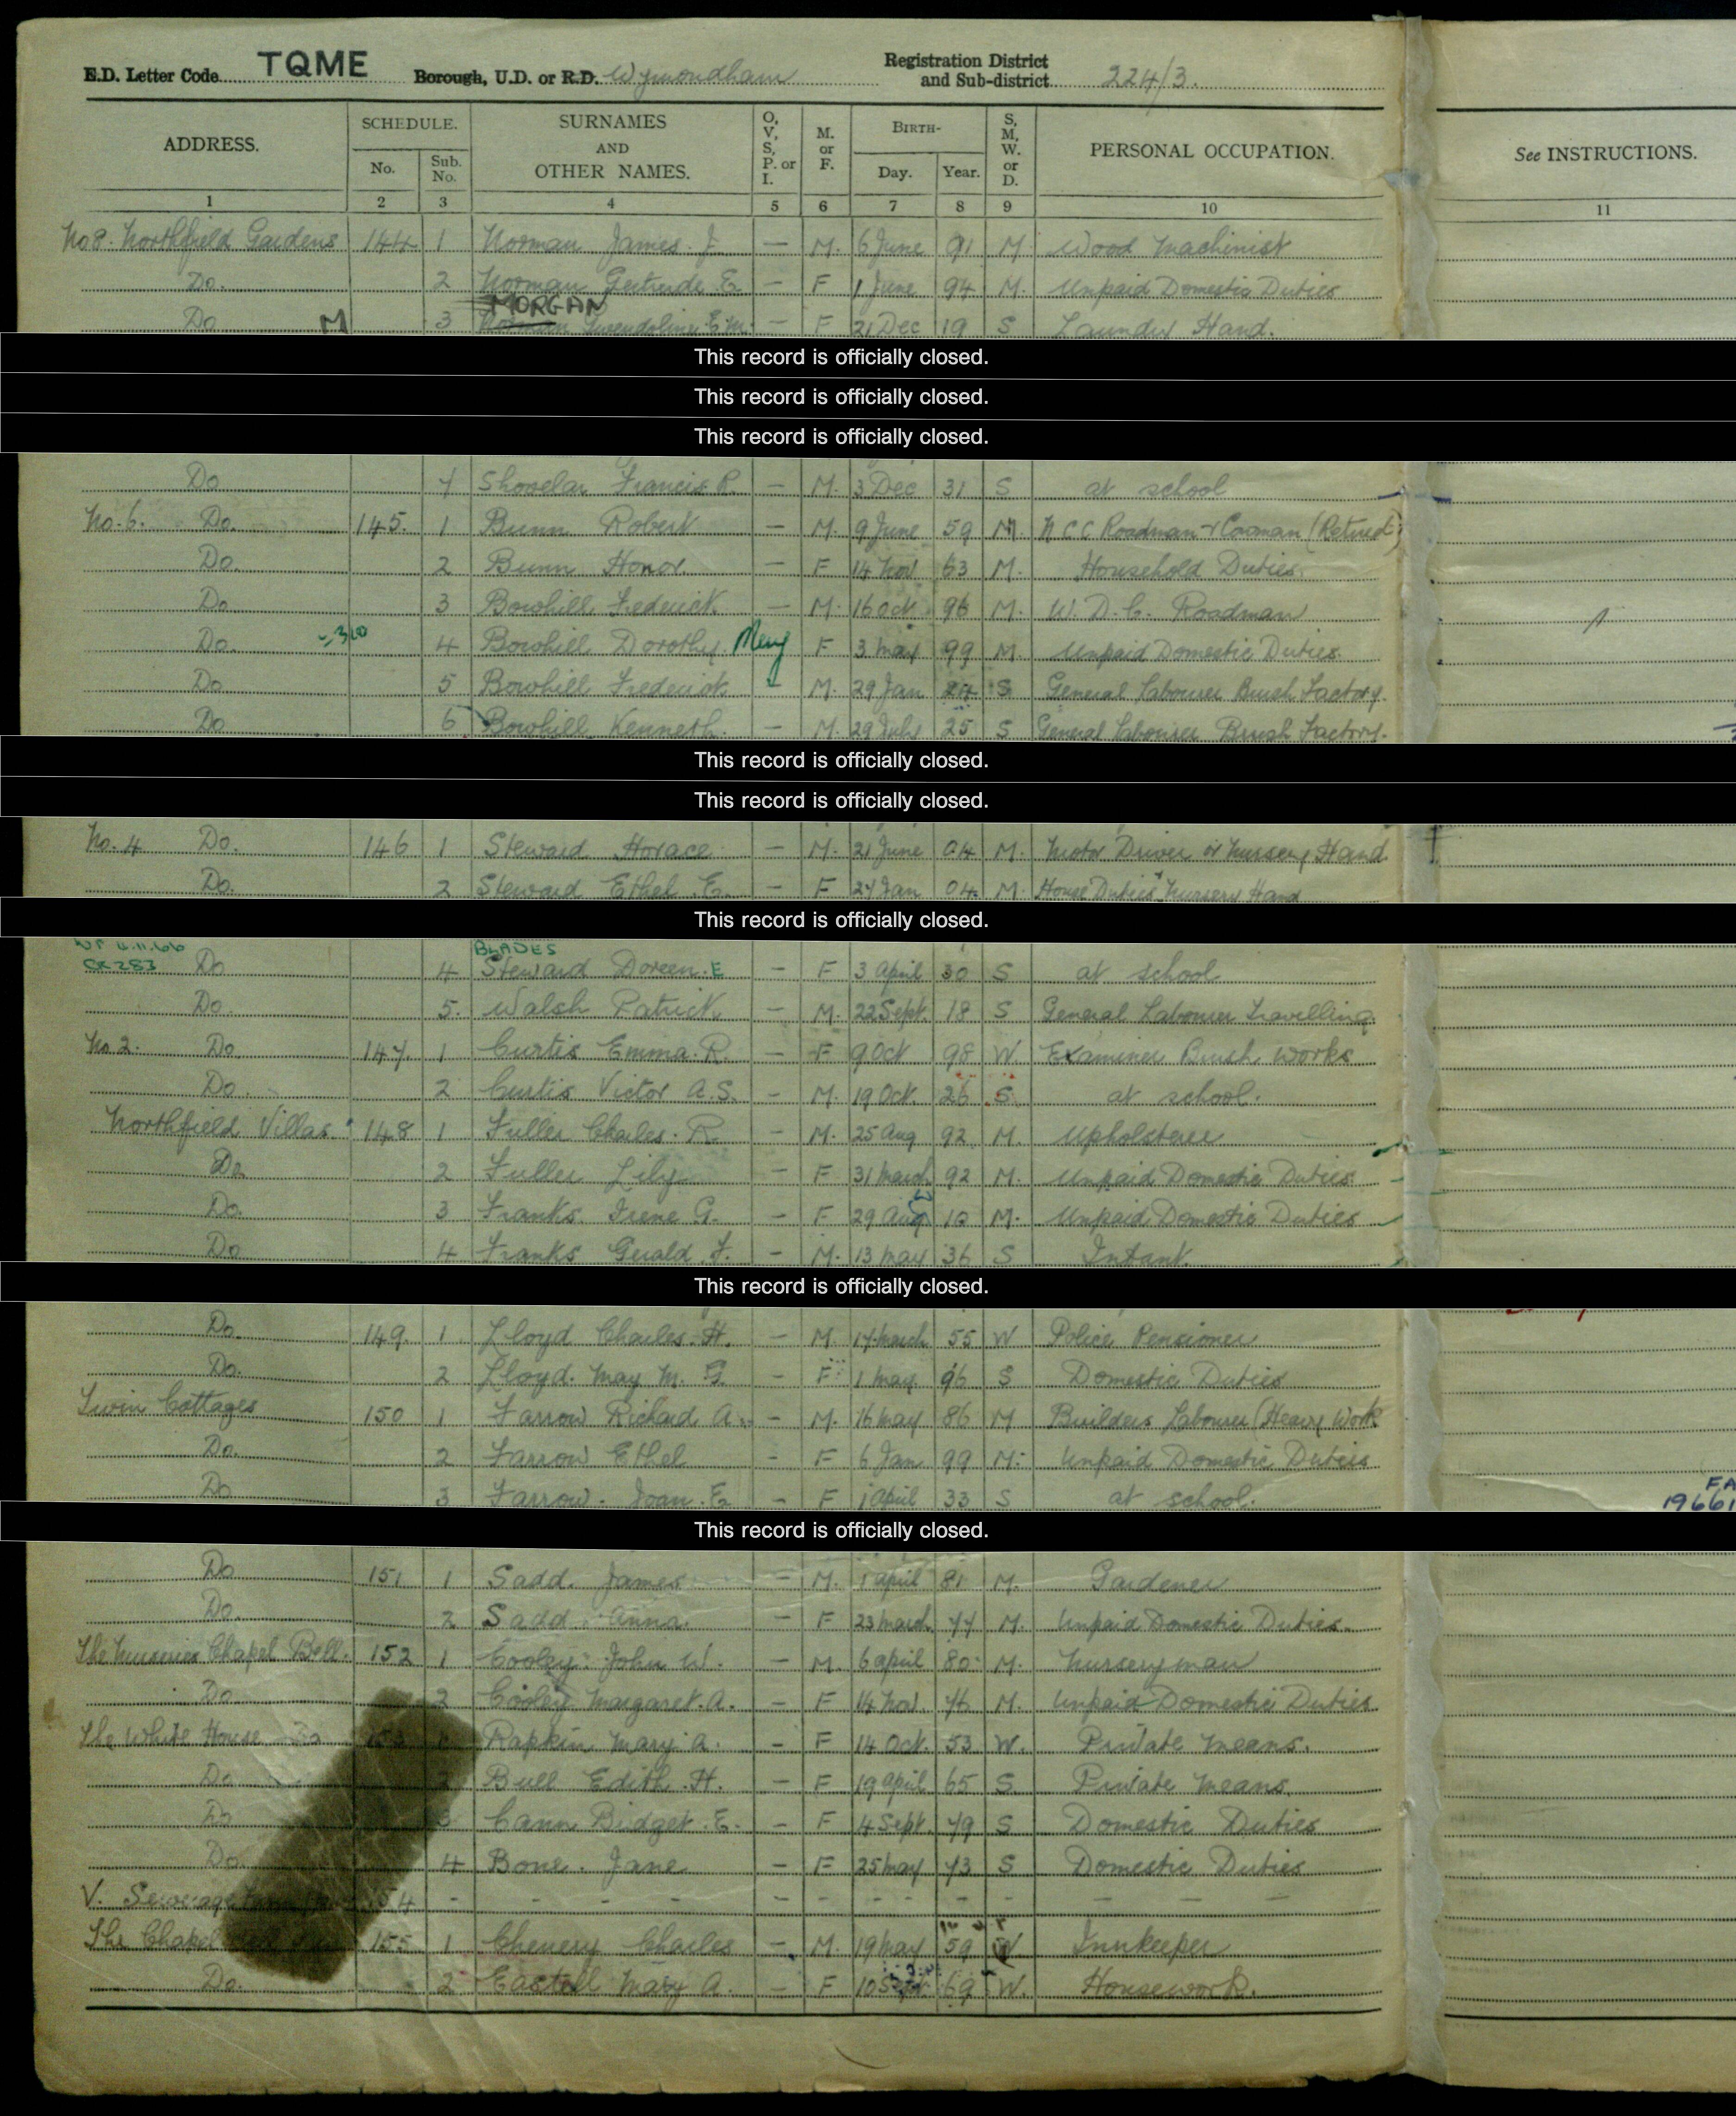 E.D. Letter Code TQME Borough, U.D. or R.D. Wymondham Registration District and Sub-district 224/3.
ADDRESS. SCHEDULE. No. Sub. No. SURNAMES AND OTHER NAMES. O, V, S, P. or I. M. or F. BIRTH- Day. Year. S, M, W. or D. PERSONAL OCCUPATION. See INSTRUCTIONS.
1 2 3 4 5 6 7 8 9 10 11
No 8. Northfield Gardens 144 1 Norman James. J — M. 6 June 91 M Wood Machinist
Do. 2 Norman Gertrude E — F 1 June 94 M. Unpaid Domestic Duties
MORGAN
Do M 3 Norman Gwendoline E.M. — F 21 Dec 19 S Laundry Hand.
This record is officially closed.
This record is officially closed.
This record is officially closed.
Do 7 Showelar Francis R. — M. 3 Dec 31 S at school
No. 6. Do. 145. 1 Bunn Robert — M. 9 June 59 M. N C C Roadman (Retired)
Do. 2 Bunn Honor. — F 14 Nov 63 M. Household Duties.
Do 3 Bowhill Frederick — M. 16 Oct 96 M. W. D. C. Roadman
Do. 4 Bowhill Dorothy. F 3 May 99 M. Unpaid Domestic Duties
Do 5 Bowhill Frederick - M. 29 Jan 24 S General Labourer Brush Factory.
Do 6 Bowhill Kenneth. — M. 29 July 25 S General Labourer Brush Factory.
This record is officially closed.
This record is officially closed.
No. 4 Do. 146 1 Steward Horace — M. 21 June 04 M. Motor Driver or Nursery Hand
Do. 2 Steward Ethel E. — F 27 Jan 04 M. House Duties Nursery Hand
This record is officially closed.
BLADES
CR 283 Do 4 Steward Doreen. E — F 3 April 30 S at school
Do. 5. Walsh Patrick — M. 22 Sept. 18 S General Labourer Travelling.
No 2. Do. 147. 1 Curtis Emma. R. — F 9 Oct 98 W Examiner Brush Works
Do. 2 Curtis Victor A.S. — M. 19 Oct. 26 S at school.
Northfield Villas. 148 1 Fuller Charles. R — M. 25 Aug 92 M. Upholsterer
Do. 2 Fuller Lily. — F 31 March 92 M. Unpaid Domestic Duties
Do. 3 Franks Irene G. — F 29 Aug 12 M. Unpaid Domestic Duties
Do 4 Franks Gerald F. — M. 13 May 36 S Infant.
This record is officially closed.
Do. 149. 1. Lloyd Charles. H. — M. 17 March 55 W Police Pensioner
Do. 2 Lloyd. May M. G — F. 1 May 96 S Domestic Duties
Twin Cottages 150 1 Farrow Richard A. — M. 16 May 86 M Builders Labourer (Heavy Work
Do. 2 Farrow Ethel — F 6 Jan 99 M. Unpaid Domestic Duties
Do 3 Farrow. Joan. E — F 1 April 33 S at school.
This record is officially closed.
Do 151 1 Sadd. James — M. 1 April 81 M. Gardener
Do. 2 Sadd. Anna. — F 23 March 77 M. Unpaid Domestic Duties.
The Nurseries Chapel Bell. 152 1 Cooley. John W. — M. 6 April 80 M. Nurseryman
Do 2 Cooley Margaret. A. — F 14 Nov. 76 M. Unpaid Domestic Duties
The White House Do 153 Rapkin Mary A. — F 14 Oct. 53 W. Private Means.
Do. 2 Bull Edith. H. — F 19 April 65 S. Private Means
Do 3 Cann Bridget. E. — F 4 Sept. 79 S Domestic Duties
Do. 4 Bone. Jane — F 25 May 73 S Domestic Duties
V. Sewage 154 - - - - - - - - -
The Chapel 155 1 Chenery Charles — M. 19 May 59 W Innkeeper
Do. 2 Eastell Mary A. — F 10 Sept 69 W. Housework.
FA
19661